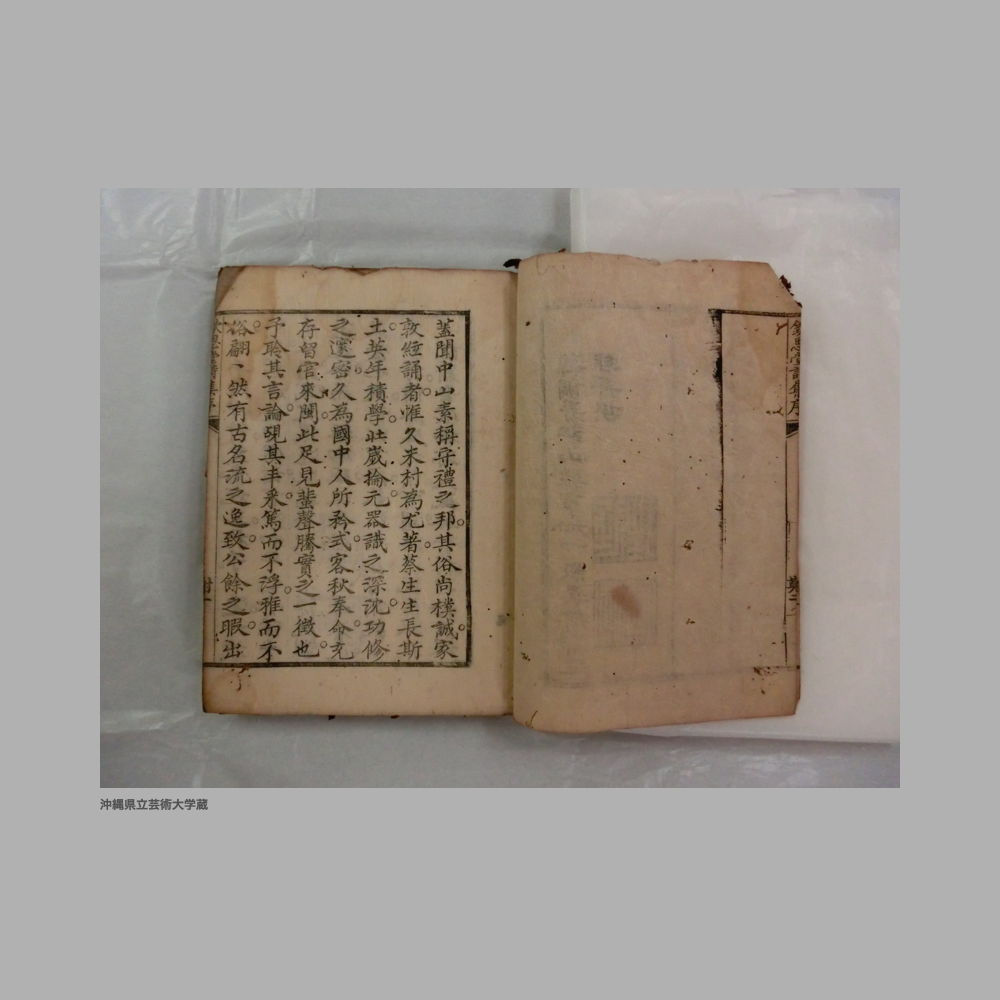 欽思堂詩集序
蓋聞中山素稱守禮之邦。其俗尚樸誠。家
敦絃誦者。惟久米村為尤著。蔡生生長斯
土。英年積學。壯歲掄元。器識之深沈。功修
之邃密。久為國中人所矜式。客秋奉命。充
存留官來閩。此足見蜚聲騰實之一徵也。
予聆其言論。覘其丰采。篤而不浮。雅而不
俗。翩、然有古名流之逸致。公餘之暇。出
沖縄県立芸術大学蔵